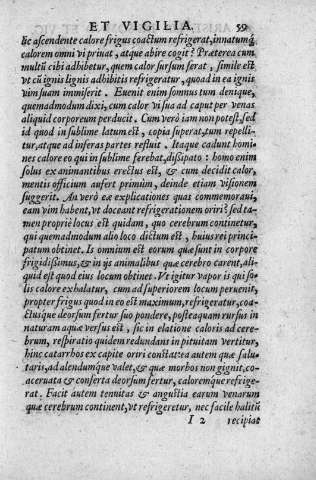 ET VIGILIA. 59
lic ascendente calore frigus coactum refrigerat, innatumq́;
calorem omni vi priuat, atque abire cogit? Præterea cum
multũ cibi adhibetur, quem calor sursum ferat, simile est,
vt cũ ignis lignis adhibitis refrigeratur, quoad in ea ignis
vim suam immiserit. Euenit enim somnus tum denique,
quemadmodum dixi, cum calor vi sua ad caput per venas
aliquid corporeum perducit. Cum verò iam non potest, sed
id quod in sublime latum est, copia superat, tum repelli-
tur, atque ad inferas partes refluit. Itaque cadunt homi-
nes calore eo qui in sublime ferebat, dissipato: homo enim
solus ex animantibus erectus est, & cum decidit calor,
mentis officium aufert primùm, deinde etiam visionem
suggerit. An verò eæ explicationes quas commemoraui,
eam vim habent, vt doceant refrigerationem oriri? sed ta-
men propriè locus est quidam, quo cerebrum continetur,
qui quemadmodum alio loco dictum est, huius rei princi-
patum obtinet. Is omnium est eorum quæ sunt in corpore
frigidissimus, & in ijs animalibus quæ cerebro carent, ali-
quid est quod eius locum obtinet. Vt igitur vapor is qui so-
lis calore exhalatur, cum ad superiorem locum peruenit,
propter frigus quod in eo est maximum, refrigeratur, coa-
ctusque deorsum fertur suo pondere, posteaquam rursus in
naturam aquæ versus est, sic in elatione caloris ad cere-
brum, respiratio quidem redundans in pituitam vertitur,
hinc catarrhos ex capite oriri constat: ea autem quæ salu-
taris, ad alendumque valet, & quæ morbos non gignit, co-
aceruata & conserta deorsum fertur, caloremque refrige-
rat. Facit autem tenuitas & angustia earum venarum
quæ cerebrum continent, vt refrigeretur, nec facile halitũ
I 2 recipiat